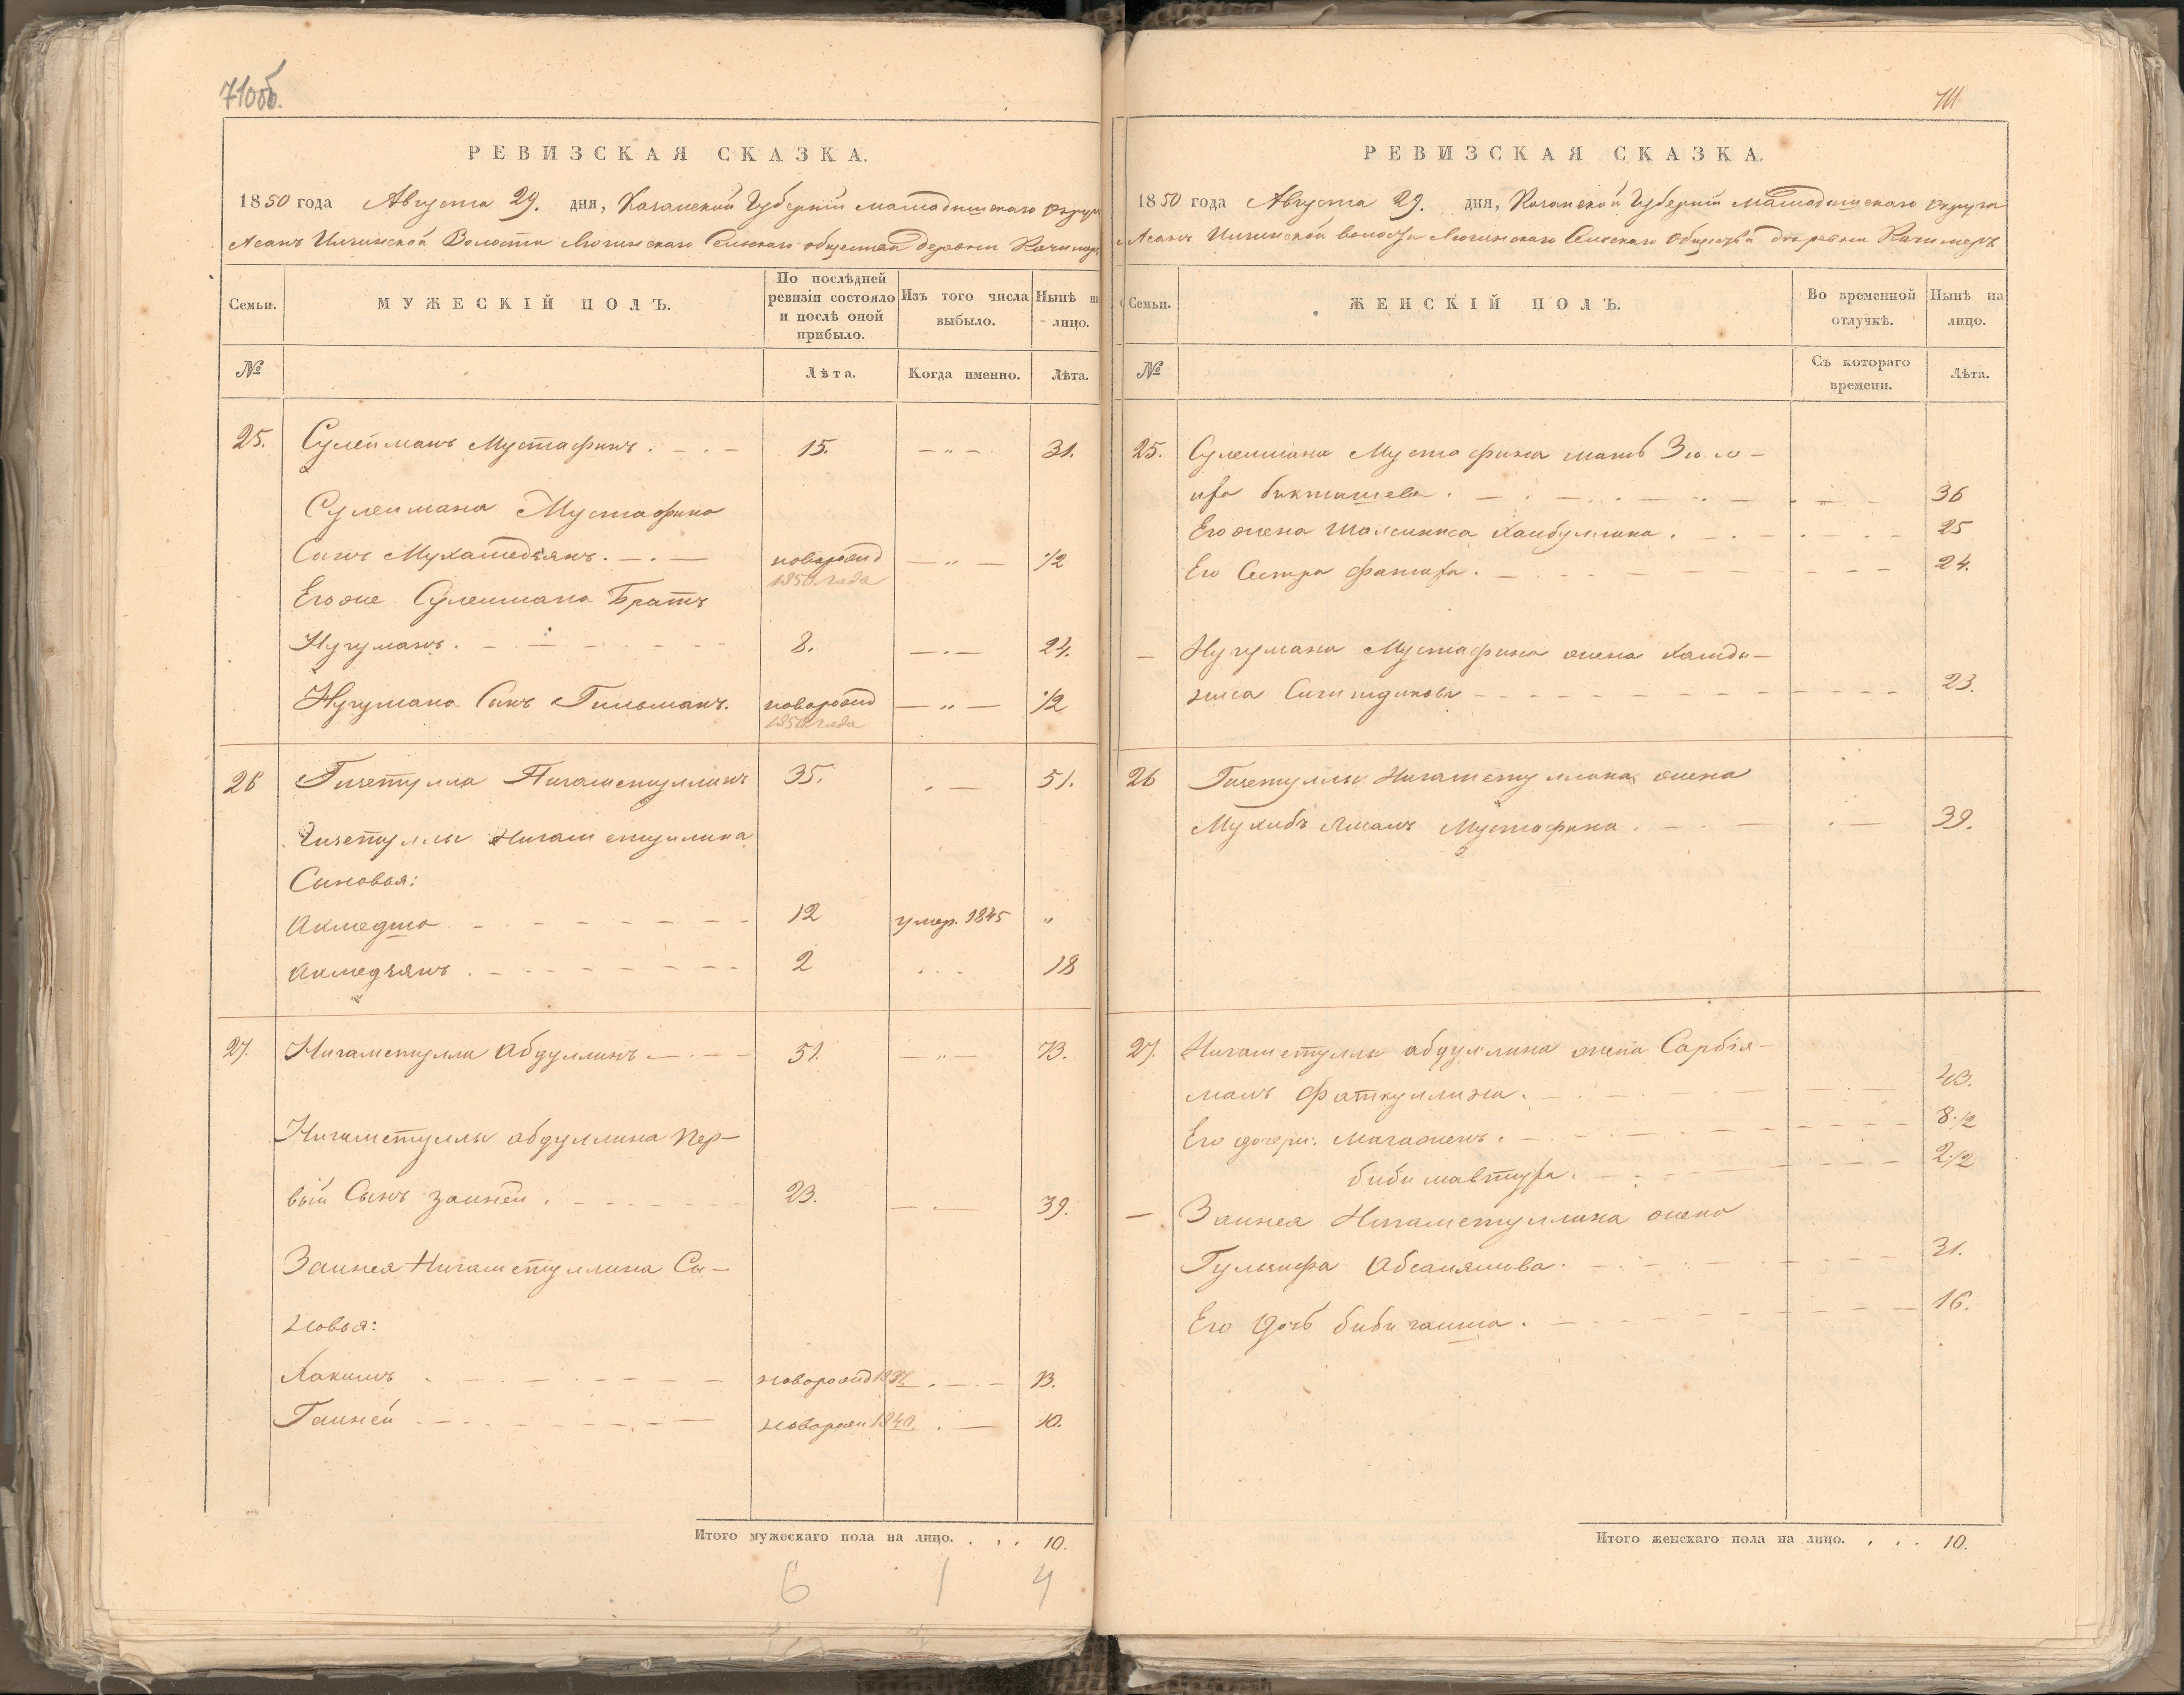 710об.
РЕВИЗСКАЯ СКАЗКА.
1850 года Августа 29. дня, Казанской Губерніи Мамадышскаго Округа
Асанъ Илгинской Волости Сельскаго общества Деревни Качимеръ
Семьи.
МУЖЕСКІЙ ПОЛЪ.
По послѣдней ревизіи состояло и послѣ оной прибыло.
Изъ того числа выбыло.
Нынѣ на лицо.
№
Лѣта.
Когда именно.
Лѣта.
25. Сулейманъ Мустафинъ. 15. — „ — 31.
Сулеимана Мустафина
Сынъ Мухаметзянъ. новорожд 1850 года — „ — 1/2
Егоже Сулеимана Братъ
Нугуманъ. 8. — 24.
Нугумана Сынъ Гильманъ. новорожд 1850 года — „ — 1/2
26 Гизетулла Нигаметуллинъ 35. — 51.
Гизетуллы Нигаметуллина
Сыновья:
Ахмедша 12 умер. 1845 „
Ахмедзянъ. 2 18
27. Нигаметулла Абдуллинъ 51. — „ — 73.
Нигаметуллы Абдуллина Пер-
вый Сынъ Зайней. 23. — 39.
Заинея Нигаметуллина Сы-
новья:
Хакимъ новорожд 1837 — 13.
Ганней новорож 1840. — 10.
Итого мужескаго пола на лицо. . . . 10.
6 1 4
711
РЕВИЗСКАЯ СКАЗКА.
1850 года Августа 29. дня, Казанской Губерніи Мамадышскаго Округа
Асанъ Илгинской волости Сельскаго Общества деревни Качимеръ
Семьи.
ЖЕНСКІЙ ПОЛЪ.
Во временной отлучкѣ.
Нынѣ на лицо.
№
Съ котораго времени.
Лѣта.
25. Сулеимана Мустафина мать Зюлю-
Бикташева. 36
Его жена Шамсиниса Хаибуллина. 25
Его Сестра 24.
— Нугумана Мустафина жена Хамди-
ниса 23.
26 Гизетуллы Нигаметуллина жена
Мустафина. 39.
27. Нигаметуллы Абдуллина жена Сарбія-
малъ Фаткуллина. 43.
Его дочери: 8 1/2
Биби 2 1/2
— Заинея Нигаметуллина жена
Гульзифа 31.
Его Дочь Биби 16.
Итого женскаго пола на лицо. . . . 10.